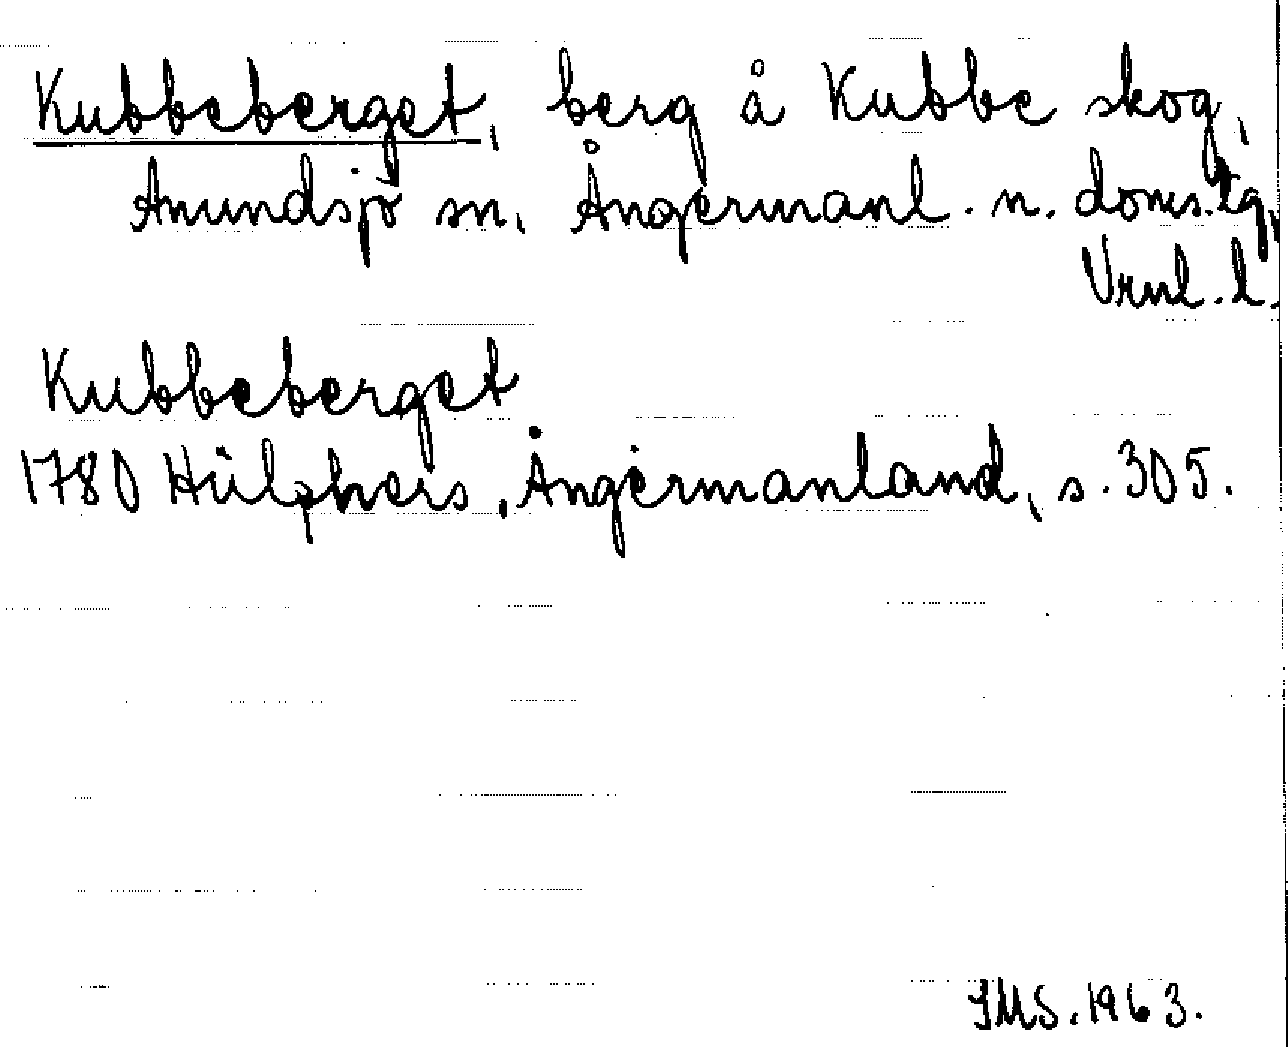 Kubbeberget, berg å Kubbe skog,
Anundsjö sn, Ångermanl. n. doms.tg,
Vrnl. l.
Kubbeberget
1780 Hülphers, Ångermanland, s. 305.
IMS. 1963.